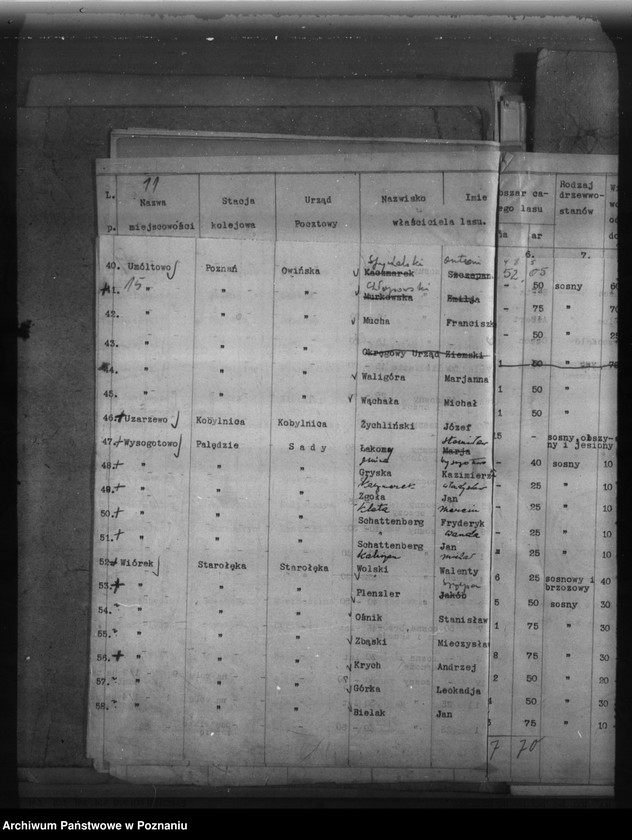 11
L. p. Nazwa miejscowości Stacja kolejowa Urząd Pocztowy Nazwisko Imie właściciela lasu. obszar ca- ego lasu ha ar Rodzaj drzewo- stanów
6. 7.
Spychalski Antoni
40. Umółtowo Poznań Owińska Kaczmarek Szczepan 52,05
15
41. " " " Murkowska Emilja - 50 sosny
42. " " " Mucha Franciszk - 75 "
43. " " " Okręgowy Urząd Ziemski - 50 "
44. " " " Waligóra Marjanna 1 50 "
45. " " " Wąchała Michał 1 50 "
46. Uzarzewo Kobylnica Kobylnica Żychliński Józef 1 50 "
47. Wysogotowo Palędzie Sady Łakomy Marja 15 - sosny, obszy- ny i jesiony
48. " " " Gryska Kazimierz - 40 sosny 10
49. " " " Zgoła Jan - 25 " 10
50. " " " Schattenberg Fryderyk - 25 " 10
" Wanda
51. " " " Schattenberg Jan - 25 " 10
52. Wiórek Starołęka Starołęka Wolski Walenty 25 " 10
53. " " " Pienzler Jakób 6 25 sosnowy i brzozowy 40
54. " " " Ożnik Stanisław 5 50 sosny 30
55. " " " Zbąski Mieczysła 1 75 " 30
56. " " " Krych Andrzej 8 75 " 30
57. " " " Górka Leokadja 2 50 " 20
58. " " " Bielak Jan 50 " 30
75 " 10
7 70
Archiwum Państwowe w Poznaniu